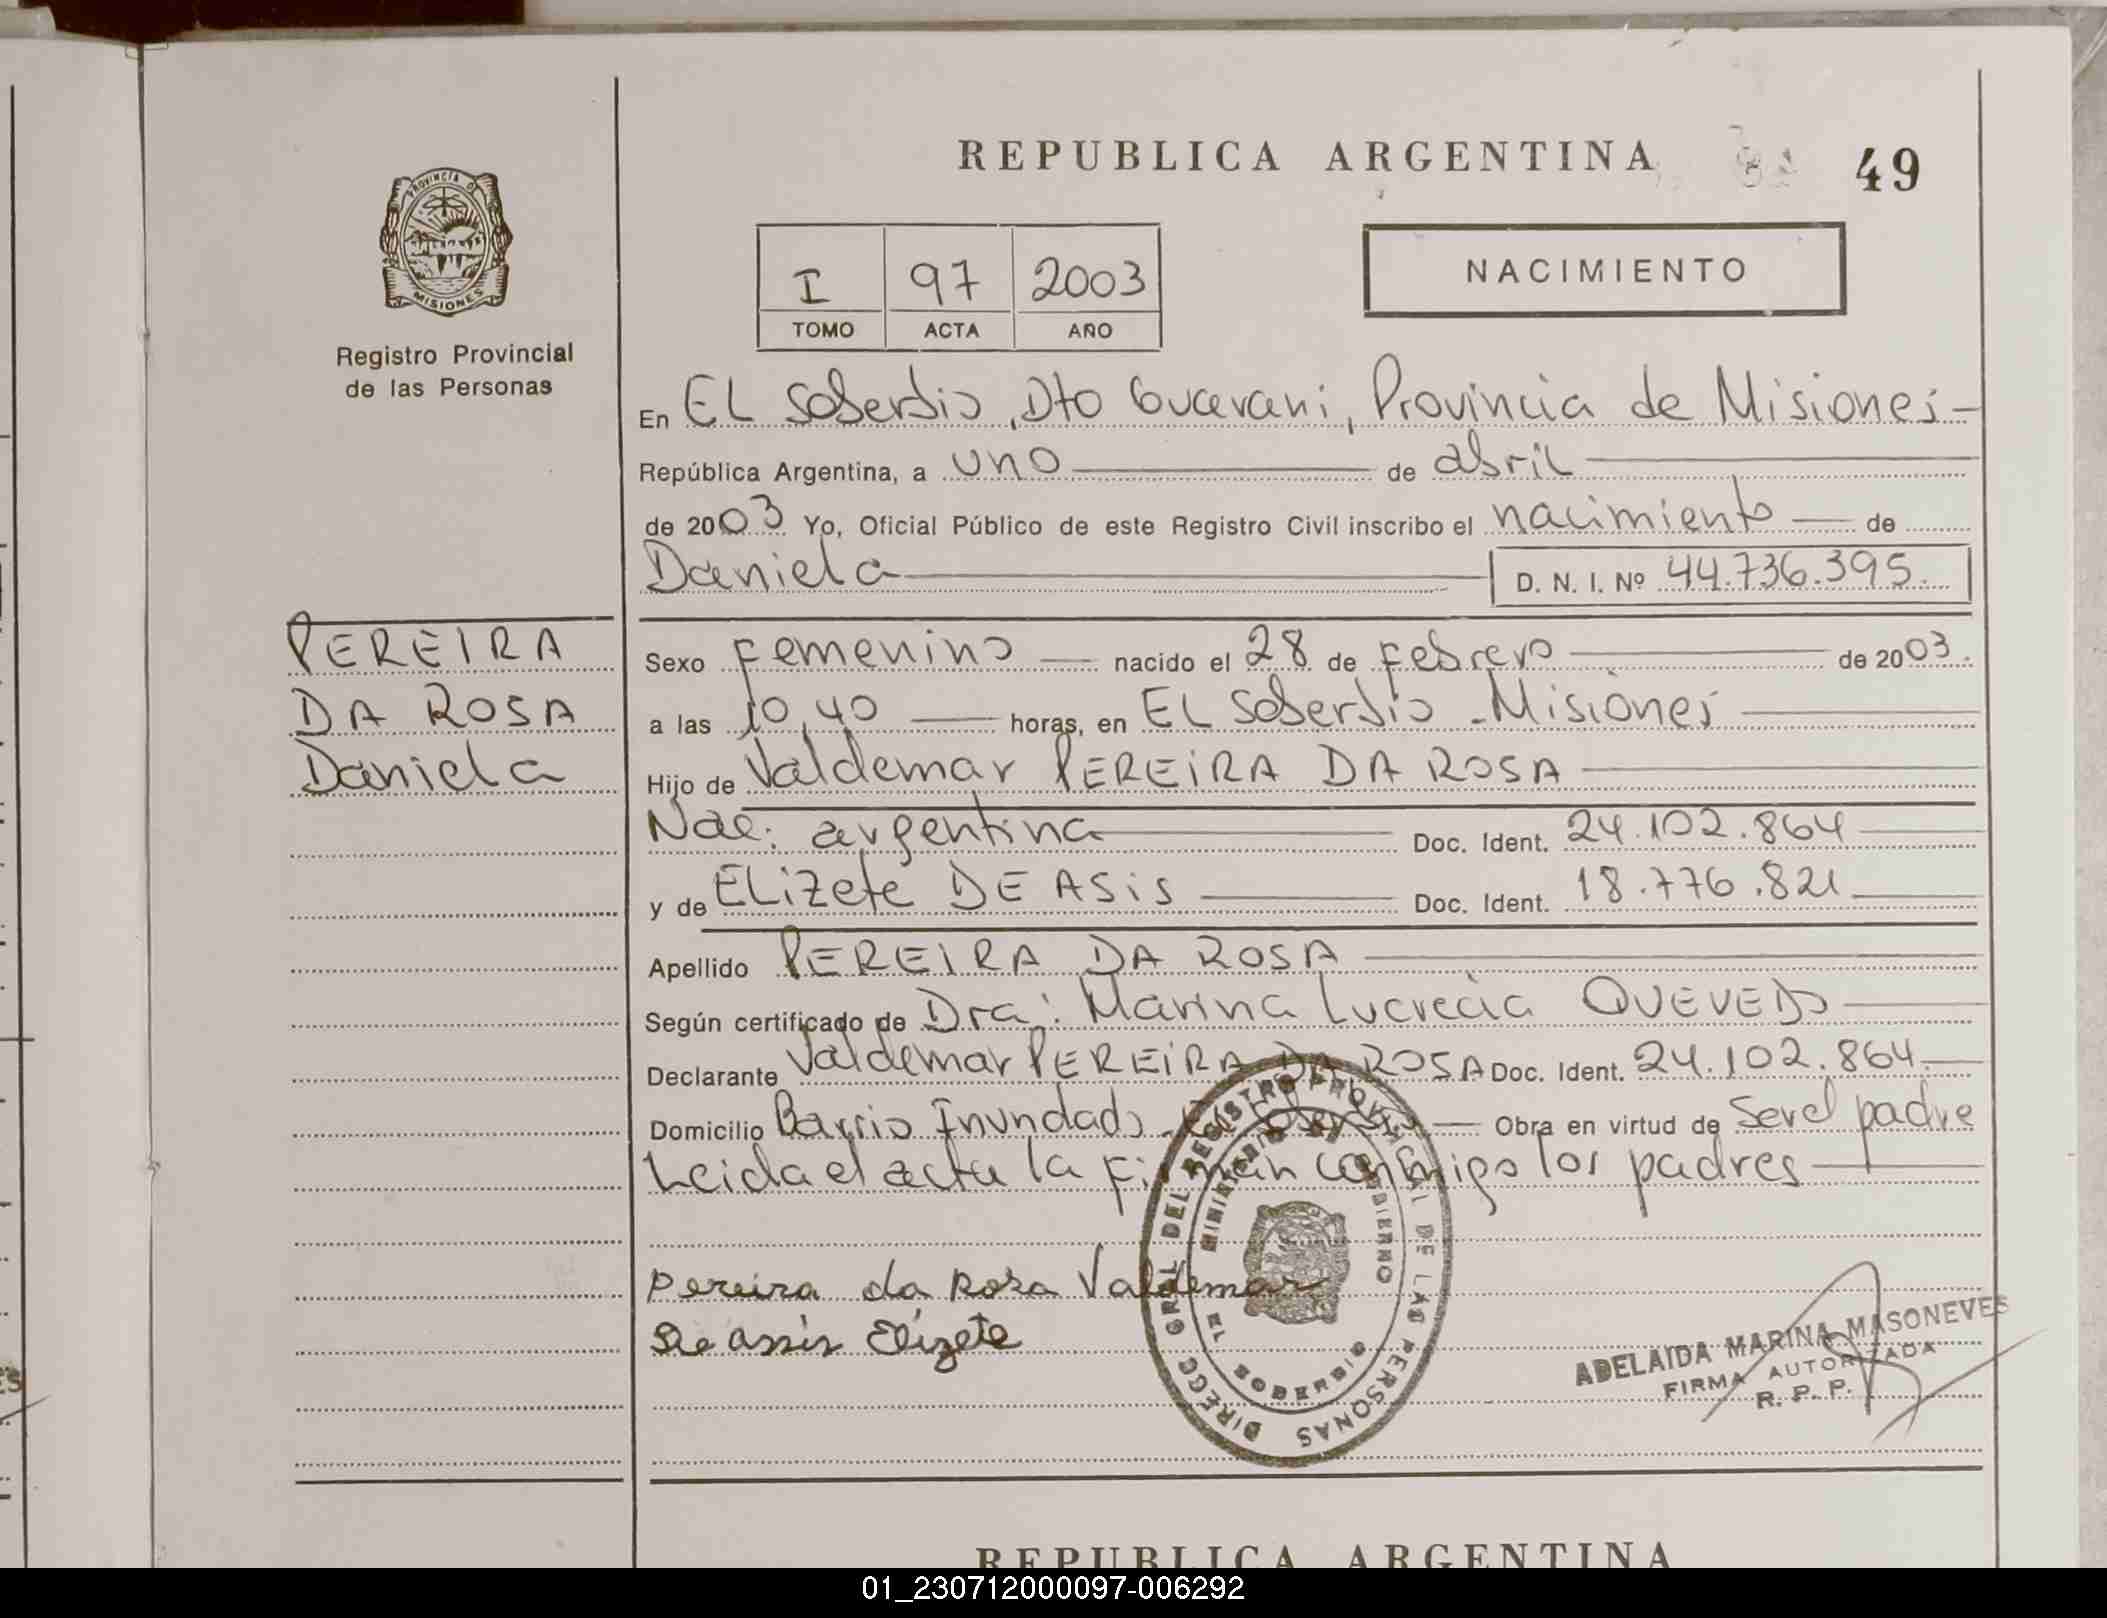 REPUBLICA ARGENTINA
49
PROVINCIA DE
MISIONES
Registro Provincial
de las Personas
I 97 2003
TOMO ACTA AÑO
NACIMIENTO
En EL Soberbio, Dto Guarani, Provincia de Misiones
República Argentina, a uno de abril
de 2003 Yo, Oficial Público de este Registro Civil inscribo el nacimiento de
Daniela D. N. I. Nº 44.736.395.
PEREIRA
DA ROSA
Daniela
Sexo Femenino nacido el 28 de Febrero de 2003.
a las 10,40 horas, en EL Soberbio - Misiones
Hijo de Valdemar PEREIRA DA ROSA
Nac: argentina Doc. Ident. 24.102.864
y de ELizete DE ASiS Doc. Ident. 18.776.821
Apellido PEREIRA DA ROSA
Según certificado de Dra: Marina Lucrecia QUEVEDO
Declarante Valdemar PEREIRA DA ROSA Doc. Ident. 24.102.864
Domicilio Barrio Inundado - El Soberbio Obra en virtud de Ser el padre
Leida el acta la Firman conmigo los padres
Pereira da Rosa Valdemar
De assis Elizete
DIRECC GRAL DEL REGISTRO PROVINCIAL DE LAS PERSONAS
MINISTERIO DE GOBIERNO
EL SOBERBIO
ADELAIDA MARINA MASONEVES
FIRMA AUTORIZADA
R. P. P.
REPUBLICA ARGENTINA
01_230712000097-006292